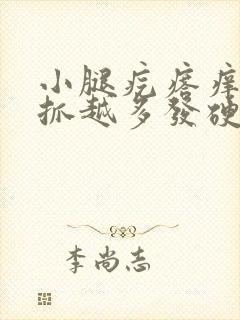 小腿疙瘩痒
抓越多發硬
李尚志